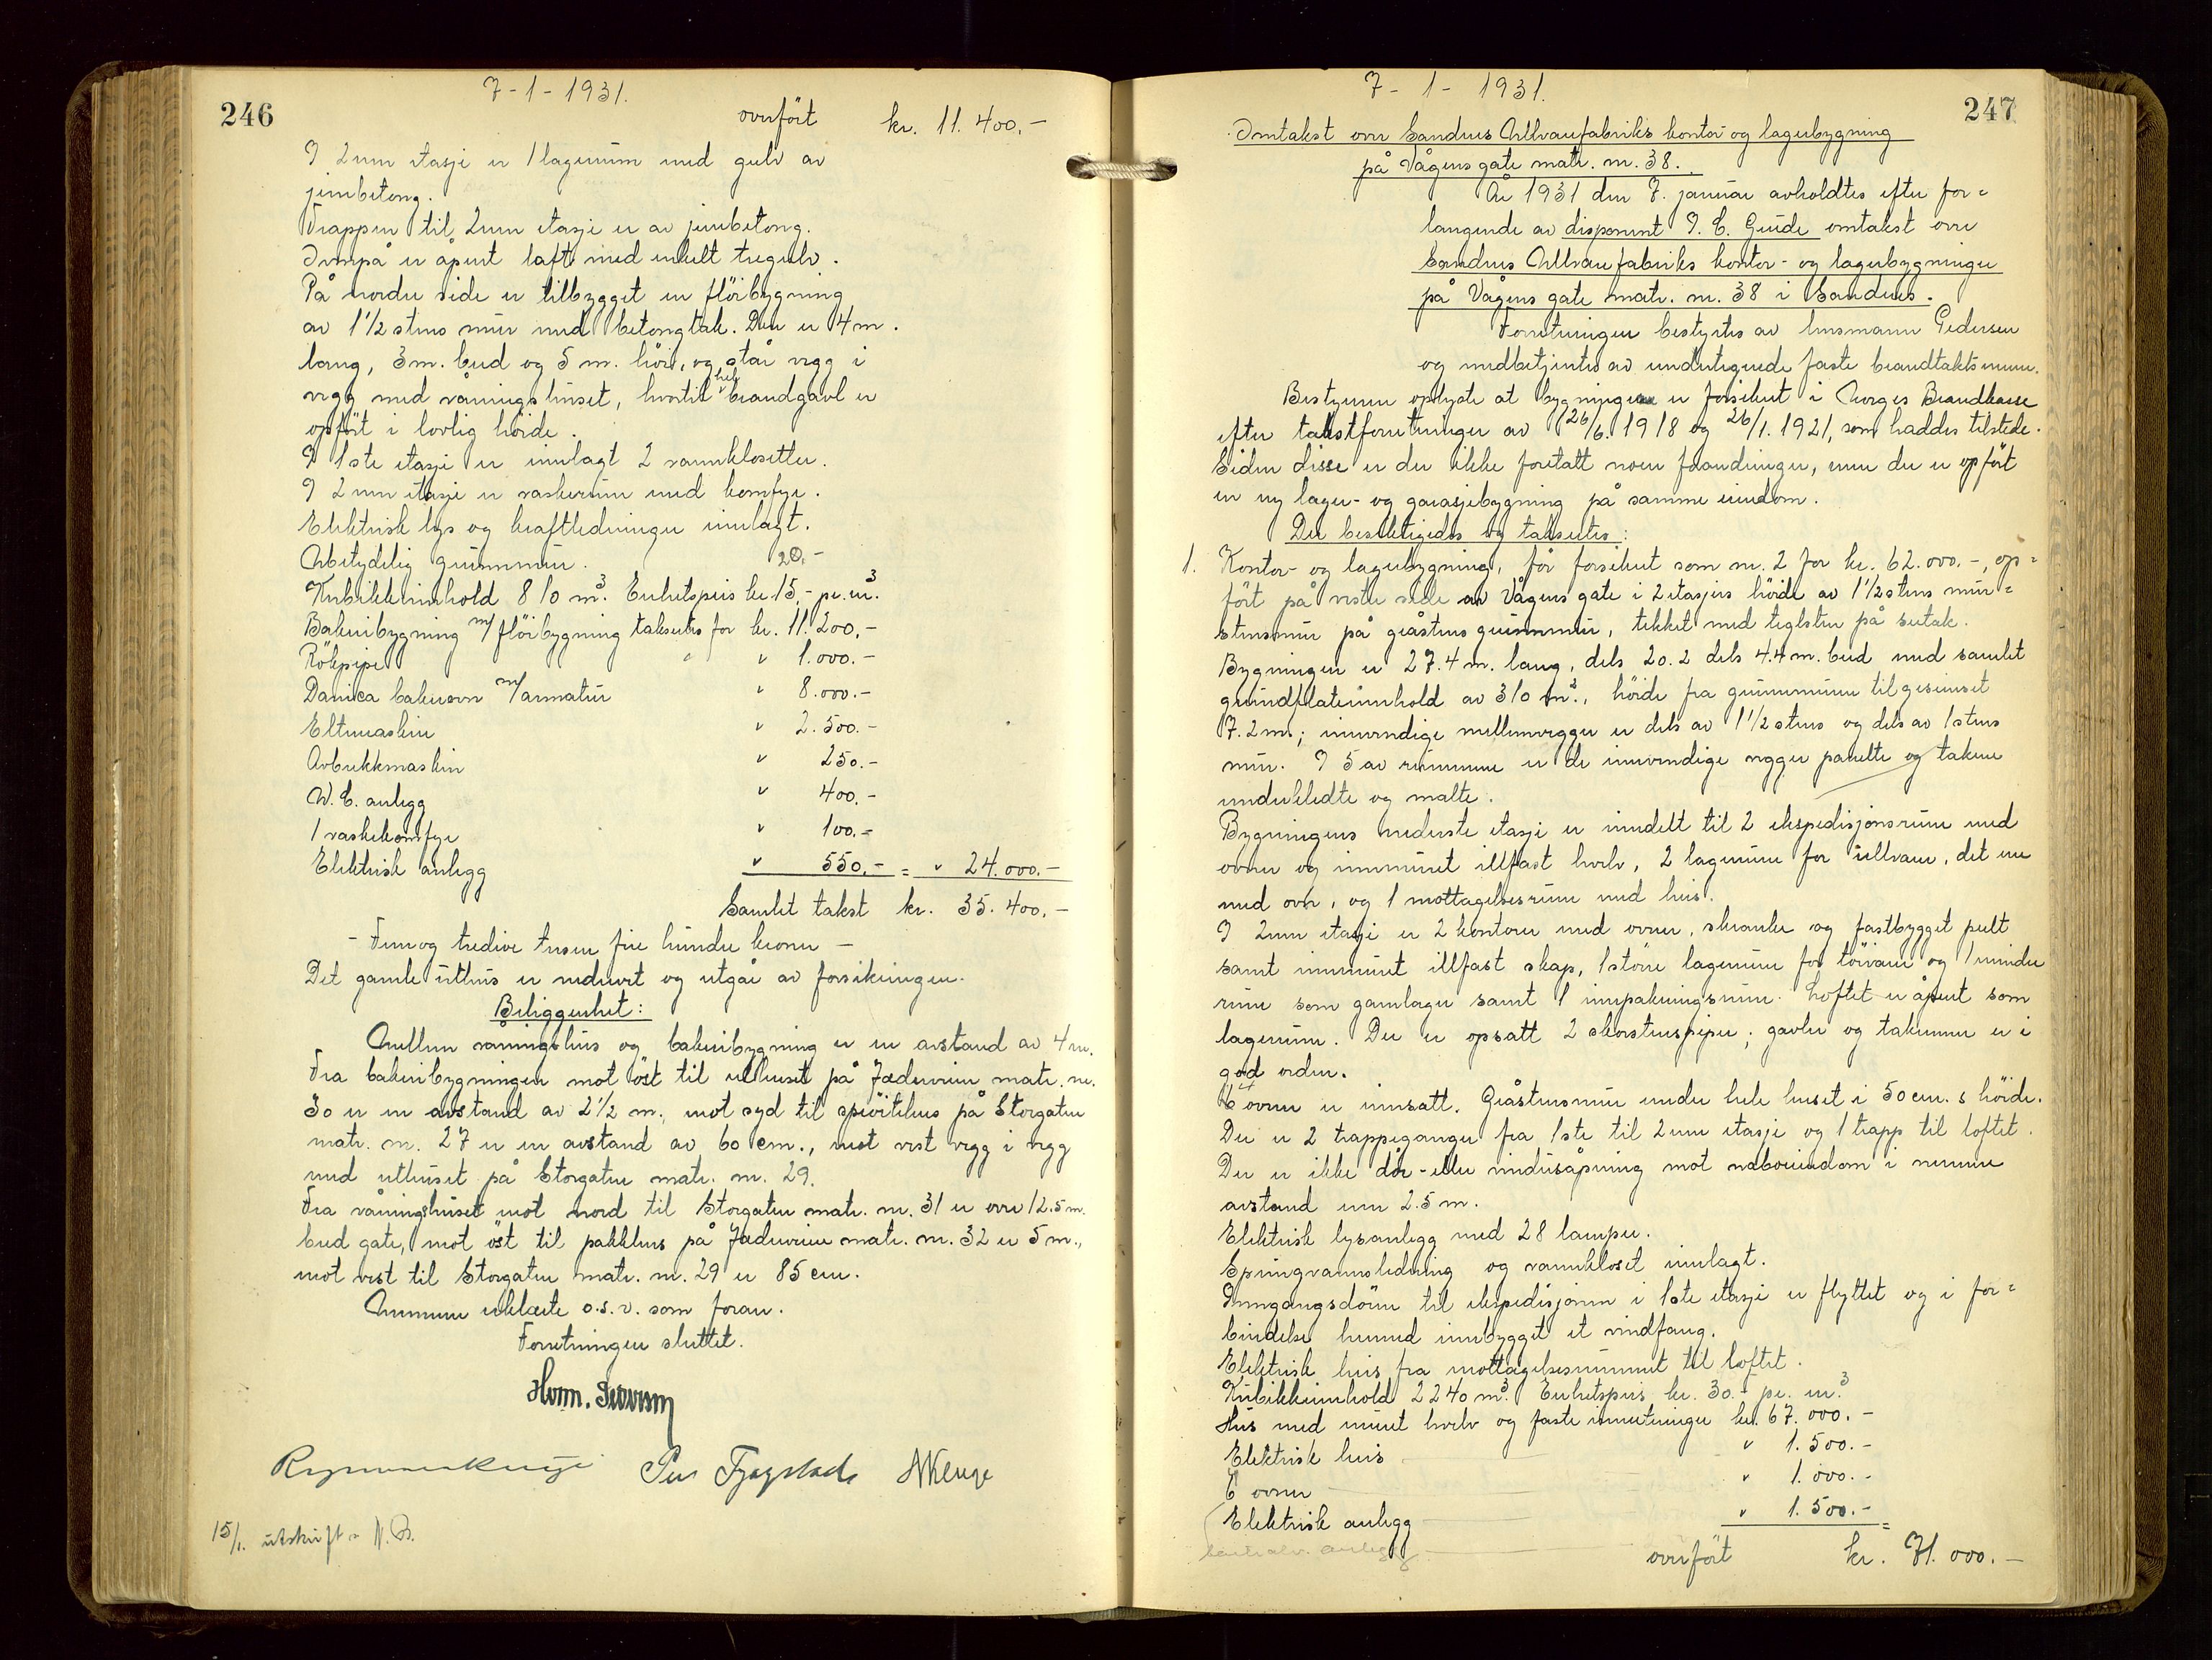 246
7-1-1931.
overført kr. 11.400.-
I 2nen etasje er 1 lagerrüm med gulv av
jernbetong.
Trappen til 2nen etasje er av jernbetong.
Ovenpå er åpent loft med enkelt tregulv.
På nordre side er tilbygget en flöibygning
av 1½ stens mür med betongtak. Den er 4 m.
lang, 3 m. bred og 5 m. höi, og står vegg i
vegg med våningshüset, hvortil hel brandgavl er
opfört i lovlig höide.
I 1ste etasje er innlagt 2 vannklosetter.
I 2nen etasje er vaskerüm med komfyr.
Elektrisk lys og kraftledninger innlagt.
Ubetydelig grünnmür.
20.-
Kubikkinnhold 810 m³. Enhetspris kr. 15,- pr. m³.
Bakeribygning m/flöibygning takseres for kr. 11.200,-
Rökpipe " " 1.000.-
Danica bakerovn m/armatür " 8.000.-
Eltemaskin " 2.500.-
Avbrekkmaskin " 250.-
W.C. anlegg " 400.-
1 vaskekomfyr " 100.-
Elektrisk anlegg " 550.- = " 24.000.-
Samlet takst kr. 35.400.-
- Fem og tredive tusen fire hündre kroner -
Det gamle üthus er nedrevet og utgår av forsikringen.
Beliggenhet:
Mellem våningshüs og bakeribygning er en avstand av 4 m.
Fra bakeribygningen mot öst til uthuset på Jæderveien matr. nr.
30 er en avstand av 2½ m., mot syd til spröitehus på Storgaten
matr. nr. 27 er en avstand av 60 cm., mot vest vegg i vegg
med uthüset på Storgaten matr. nr. 29.
Fra våningshüset mot nord til Storgaten matr. nr. 31 er over 12.5 m.
bred gate, mot öst til pakkhus på Jæderveien matr. nr. 32 er 5 m.,
mot vest til Storgaten matr. nr. 29 er 85 cm.
Mennene erklærte o.s.v. som foran.
Forretningen sluttet.
15/1. ütskrift
247
7-1-1931.
Omtakst over Sandnes Ullvarefabriks kontor og lagerbygning
på Vågens gate matr. nr. 38.
År 1931 den 7. januar avholdtes efter for=
langende av disponent I. C. Gude omtakst over
Sandnes Ullvarefabriks kontor- og lagerbygninger
på Vågens gate matr. nr. 38 i Sandnes.
Forretningen bestyrtes av lensmann Pedersen
og medbetjentes av undertegnede faste brandtakstmenn.
Bestyreren oplyste at bygningene er forsikret i Norges Brandkasse
efter takstforretninger av 26/6. 1918 og 26/1. 1921, som haddes tilstede.
Siden disse er der ikke foretatt noen forandringer, men der er opfört
en ny lager- og garasjebygning på samme eiendom.
Der besiktigedes og takseres:
1. Kontor- og lagerbygning, för forsikret som nr. 2 for kr. 62.000.-, op=
fört på vestre side av Vågens gate i 2 etasjers höide av 1½ stens mür=
stensmür på gråstens grünnmür, tekket med teglsten på sutak.
Bygningen er 27.4 m. lang, dels 20.2 dels 4.4 m. bred med samlet
grundflateinnhold av 310 m²., höide fra grunnmuren til gesimset
7.2 m; innvendige mellemvegger er dels av 1½ stens og dels av 1 stens
mür. I 5 av rümmene er de innvendige vegger panelte og takene
underkledte og malte.
Bygningens nederste etasje er inndelt til 2 ekspedisjonsrüm med
ovner og innmüret illfast hvelv, 2 lagerrüm for üllvarer, det ene
med ovn, og 1 mottagelsesrüm med heis.
I 2nen etasje er 2 kontorer med ovner, skranke og fastbygget pult
samt innmüret illfast skap, 1 större lagerrüm for törvarer og 1 mindre
rüm som garnlager samt 1 innpakningsrüm. Loftet er åpent som
lagerrüm. Der er opsatt 2 skorstenspiper; gavler og takrenner er i
god orden.
6 ovner er innsatt. Gråstensmür under hele huset i 50 cm.s höide.
Der er 2 trappeganger fra 1ste til 2nen etasje og 1 trapp til loftet.
Der er ikke dör- eller vindüsåpning mot naboeiendom i nermere
avstand enn 2.5 m.
Elektrisk lysanlegg med 28 lamper.
Springvannsledning og vannkloset innlagt.
Inngangsdören til ekspedisjonen i 1ste etasje er flyttet og i for=
bindelse hermed innbygget et vindfang.
Elektrisk heis fra mottagelsesrümmet til loftet.
Kübikkinnhold 2240 m³. Enhetspris kr. 30.- pr. m³
Hüs med müret hvelv og faste innretninger kr. 67.000.-
Elektrisk heis " 1.500.-
6 ovner " 1.000.-
Elektrisk anlegg " 1.500.- =
Sentralv. anlegg
overfört kr. 71.000.-